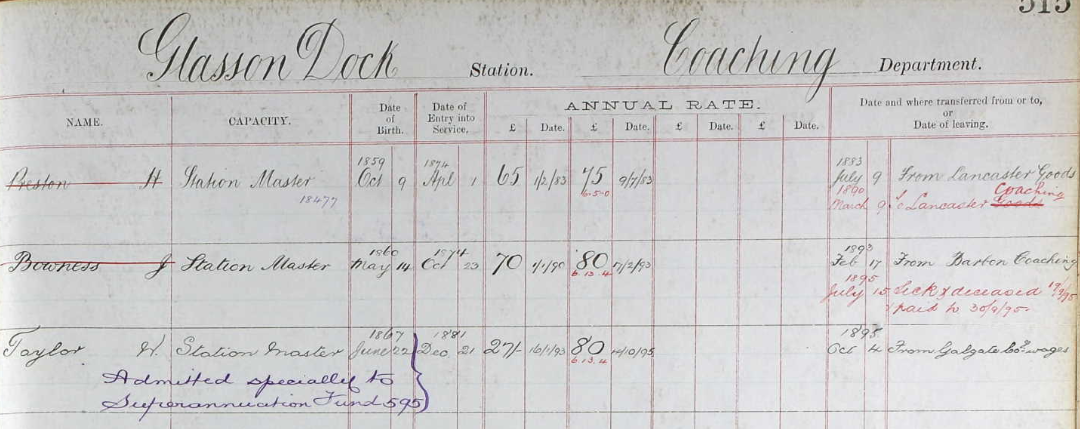 515
Glasson Dock Station. Coaching Department.
NAME. CAPACITY. Date of Birth. Date of Entry into Service. ANNUAL RATE. Date and where transferred from or to, or Date of leaving.
£ Date. £ Date. £ Date. £ Date.
1859 1874 1883
Preston H Station Master Oct 9 Apl 1 65 1/2/83 75 9/7/83 July 9 From Lancaster Goods
18477 6-5-0 1890 Coaching
March 9 To Lancaster Goods
1860 1874 1893
Bowness J Station Master May 14 Oct 23 70 1/1/90 80 Feb 17 From Barbon Coaching
6.13.4 1895
July 15 Sick & deceased
paid to 30/9/95
1867 1881 1895
Taylor W. Station Master June 22 Dec 21 27/- 16/1/93 80 14/10/95 Oct 4 From Galgate wages
6.13.4
Admitted specially to
Superannuation Fund 595